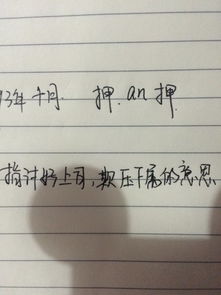 3年十月 押.an 押
指讨好上司,欺压下属的意思